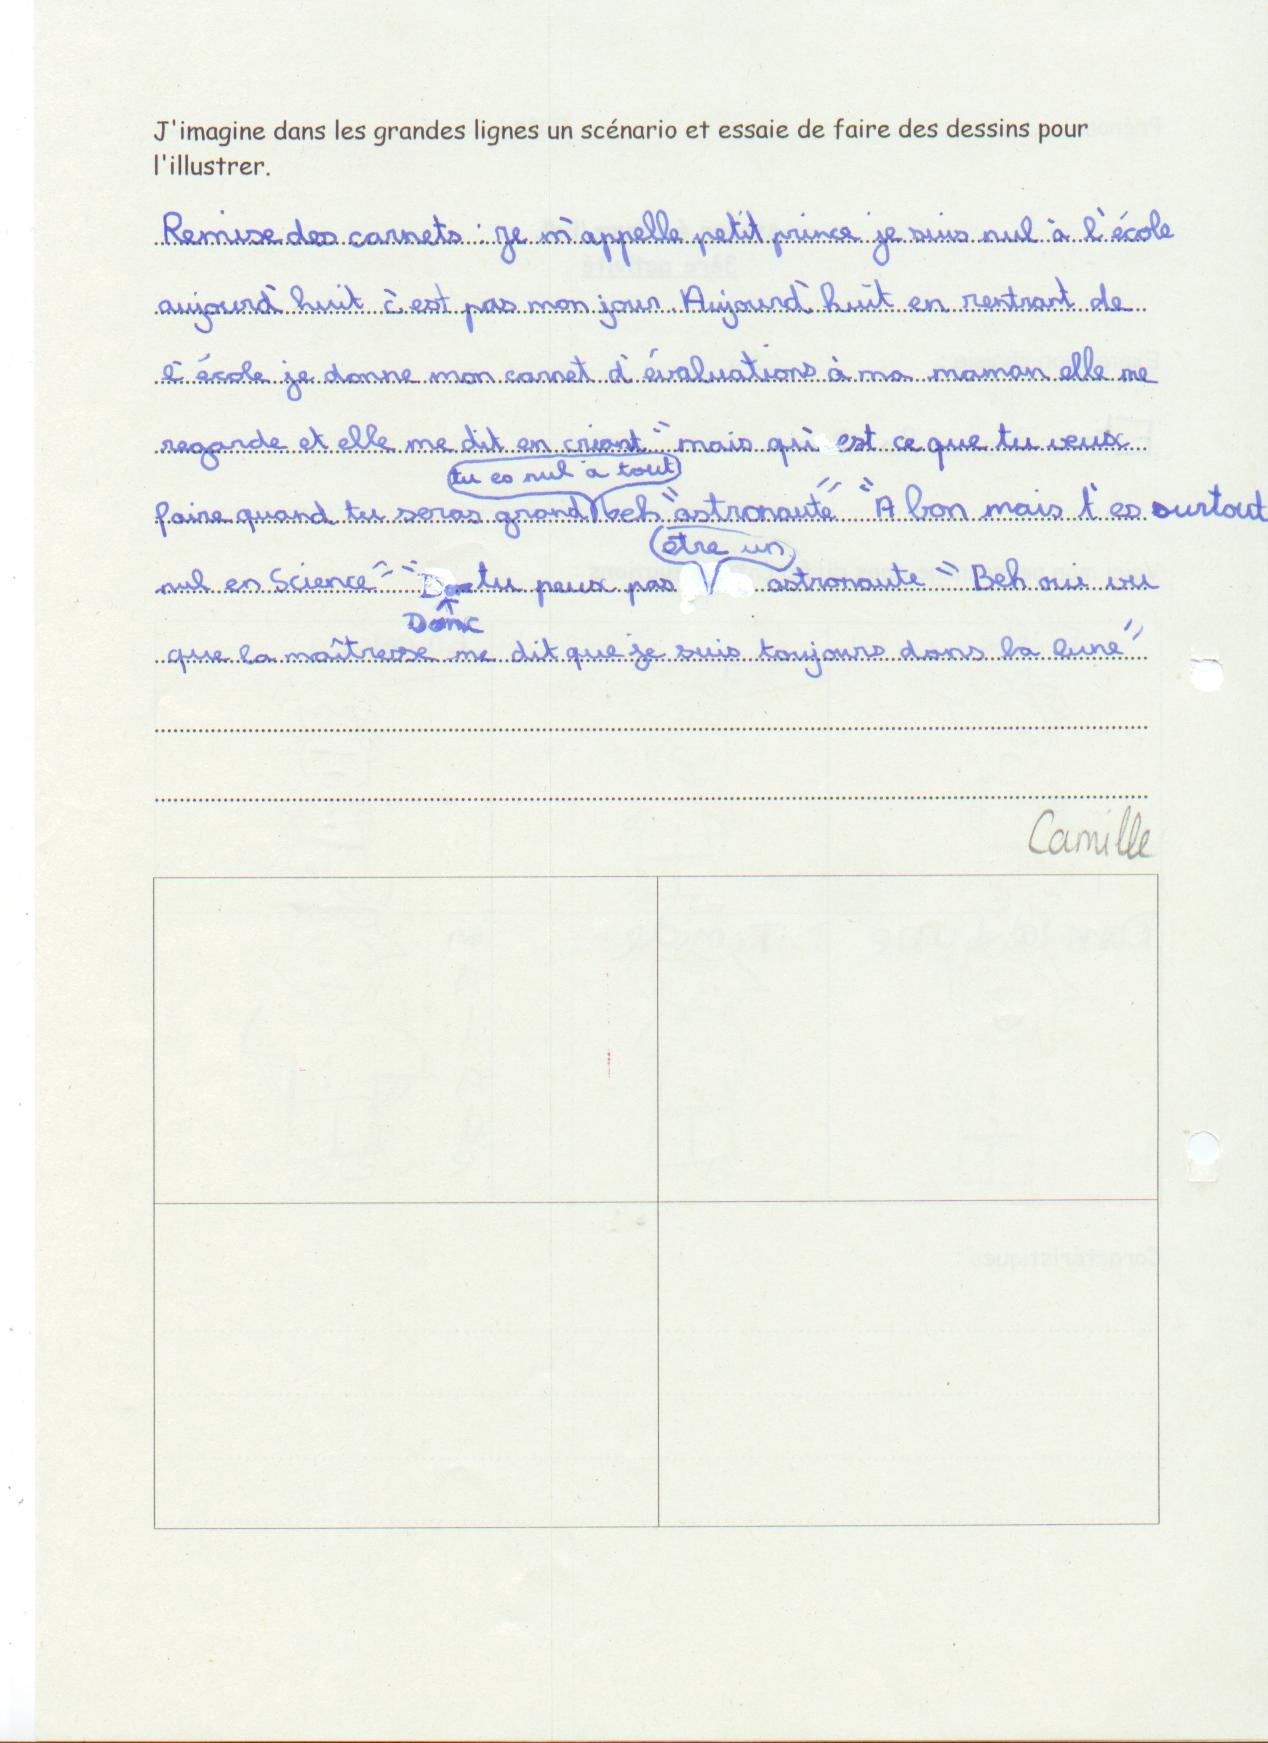 J'imagine dans les grandes lignes un scénario et essaie de faire des dessins pour
l'illustrer.
Remise des carnets : je m'appelle petit prince je suis nul à l'école
aujourd'huit c'est pas mon jour. Aujourd'huit en rentrant de
l'école je donne mon carnet d'évaluations à ma maman elle me
regarde et elle me dit en criant "mais qu'est ce que tu veux
tu es nul à tout
faire quand tu seras grand beh "astronaute" "A bon mais t'es surtout
être un
nul en Science" "D tu peux pas astronaute" Beh oui vu
Donc
que la maîtresse me dit que je suis toujours dans la lune"
Camille